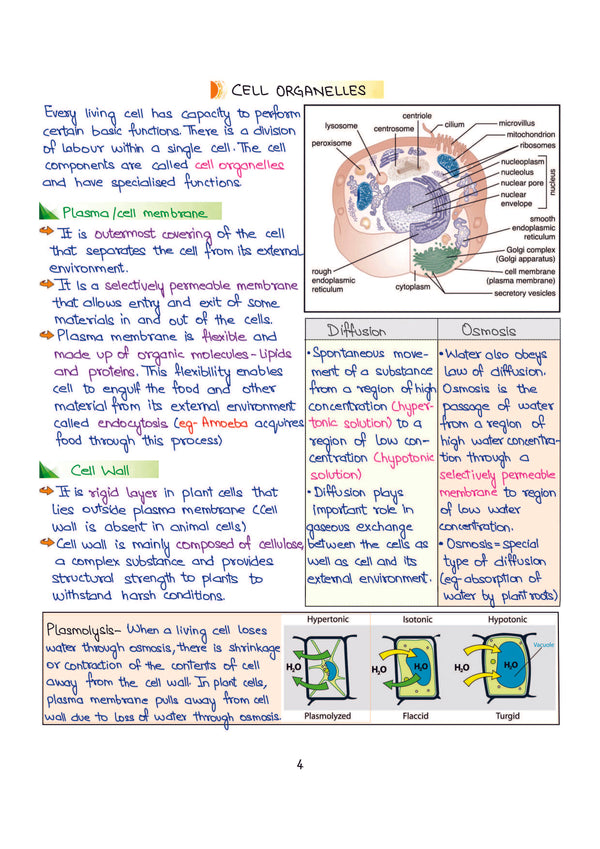 CELL ORGANELLES
Every living cell has capacity to perform
certain basic functions. There is a division
of labour within a single cell. The cell
components are called cell organelles
and have specialised functions.
Plasma/cell membrane
It is outermost covering of the cell
that separates the cell from its external
environment.
It Is a selectively permeable membrane
that allows entry and exit of some
materials in and out of the cells.
Plasma membrane is flexible and
made up of organic molecules - lipids
and proteins. This flexibility enables
cell to engulf the food and other
material from its external environment
called endocytosis (eg- Amoeba acquires
food through this process)
Cell Wall
It is rigid layer in plant cells that
lies outside plasma membrane (Cell
wall is absent in animal cells)
Cell wall is mainly composed of cellulose,
a complex substance and provides
structural strength to plants to
withstand harsh conditions.
centriole
lysosome
centrosome
cilium
microvillus
mitochondrion
ribosomes
peroxisome
nucleoplasm
nucleolus
nuclear pore
nuclear
envelope
nucleus
smooth
endoplasmic
reticulum
Golgi complex
(Golgi apparatus)
cell membrane
(plasma membrane)
secretory vesicles
rough
endoplasmic
reticulum
cytoplasm
Diffusion
• Spontaneous move-
ment of a substance
from a region of high
concentration (hyper-
tonic solution) to a
region of low con-
centration (hypotonic
solution)
• Diffusion plays
important role in
gaseous exchange
between the cells as
well as cell and its
external environment.
Osmosis
• Water also obeys
law of diffusion.
Osmosis is the
passage of water
from a region of
high water concentra-
tion through a
selectively permeable
membrane to region
of low water
concentration.
• Osmosis = special
type of diffusion
(eg-absorption of
water by plant roots)
Plasmolysis- When a living cell loses
water through osmosis, there is shrinkage
or contraction of the contents of cell
away from the cell wall. In plant cells,
plasma membrane pulls away from cell
wall due to loss of water through osmosis.
Hypertonic Isotonic Hypotonic
Vacuole
H₂O H₂O H₂O H₂O H₂O
Plasmolyzed Flaccid Turgid
4